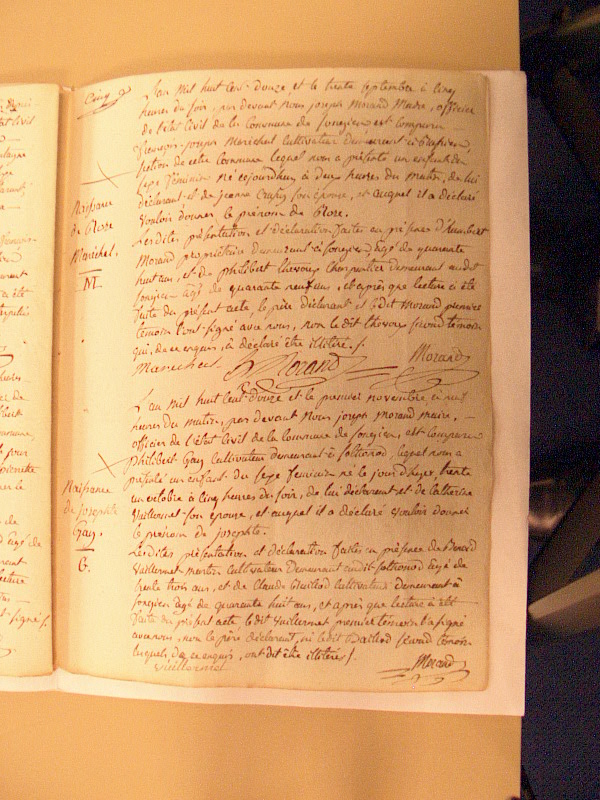 Cinq
L'an mil huit cent douze et le trente septembre à cinq
heures du soir, par devant nous joseph Morand Maire, officier
de l'état Civil de la Commune de Songieu est comparu
françois joseph Maréchal Cultivateur demeurant à
section de cette Commune lequel nous a présenté un enfant du
sexe féminin né cejourdhuy à deux heures du matin, de lui
déclarant et de jeanne son épouse, et auquel il a déclaré
vouloir donner le prénom de Rose.
Lesdites présentation et déclaration faites en présence d'humbert
Morand propriétaire demeurant à Songieu âgé de quarante
huit ans, et de philibert Charpentier demeurant audit
Songieu âgé de quarante neuf ans, et après que lecture a été
faite du présent acte, le père déclarant et ledit Morand premier
témoin l'ont signé avec nous, non le dit second témoin
qui, de ce enquis, a déclaré être illitéré ./.
Marechal Morand Morand
Naissance
de Rose
Maréchal.
M.
L'an mil huit cent douze et le premier novembre à neuf
heures du matin, par devant nous joseph Morand maire,
officier de l'état civil de la commune de Songieu, est comparu
philibert Gay cultivateur demeurant à Sothonod, lequel nous a
présenté un enfant du sexe féminin né le jour d'hyer, trente
un octobre à cinq heures du soir, de lui déclarant et de Catherine
Vuillermet son épouse, et auquel il a déclaré vouloir donner
le prénom de josephte.
Lesdites présentation et déclaration faites en présence de
Vuillermet cultivateur demeurant audit Sothonod âgé de
trente trois ans, et de Claude cultivateur demeurant à
Songieu âgé de quarante huit ans, et après que lecture a été
faite du présent acte ledit Vuillermet premier témoin l'a signé
avec nous, non le père déclarant, ni ledit second témoin
lesquels de ce enquis, ont dit être illitérés /.
Vuillermet Morand
Naissance
de josephte
Gay.
G.